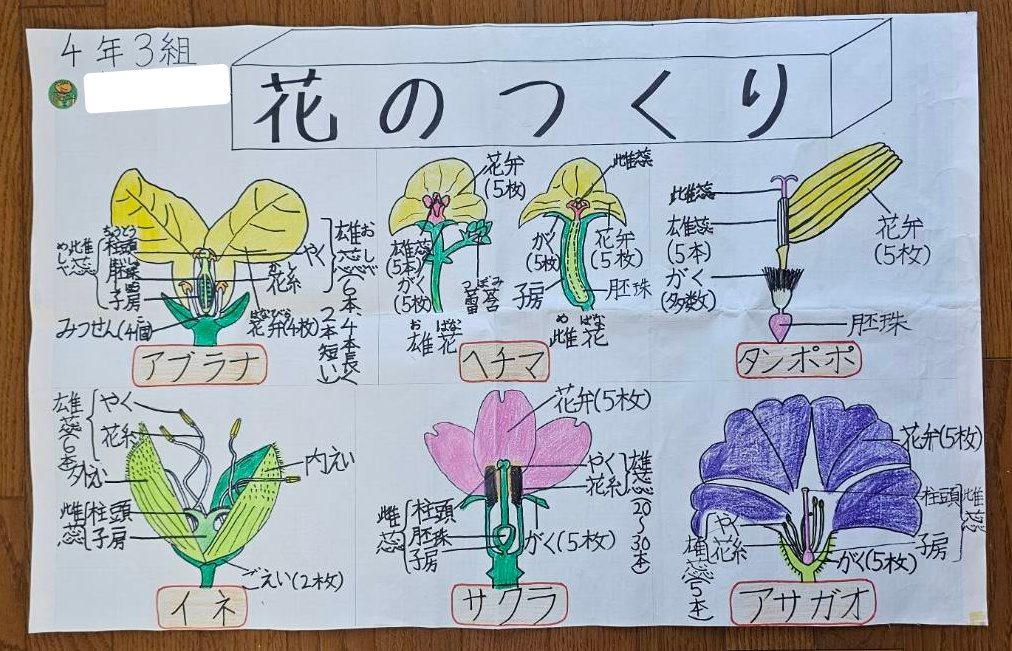 4年3組
花のつくり
めしべ
雌蕊
ちゅうとう
柱頭
胚珠
子房
みつせん(4個)
やく
かし
花糸
はなびら
花弁(4枚)
おしべ
雄蕊(6本、4本長く
2本短い)
アブラナ
花弁
(5枚)
雄蕊
(5本)
がく
(5枚)
つぼみ
蕾
おばな
雄花
雌蕊
がく
(5枚)
花弁
(5枚)
子房
胚珠
めばな
雌花
ヘチマ
雌蕊
雄蕊
(5本)
がく
(多数)
花弁
(5枚)
胚珠
タンポポ
雄蕊(6本)
やく
花糸
外えい
内えい
雌蕊
柱頭
子房
ごえい(2枚)
イネ
花弁(5枚)
やく
花糸
雄蕊(20〜30本)
雌蕊
柱頭
胚珠
子房
がく(5枚)
サクラ
花弁(5枚)
柱頭
雌蕊
子房
やく
花糸
雄蕊(5本)
がく(5枚)
アサガオ